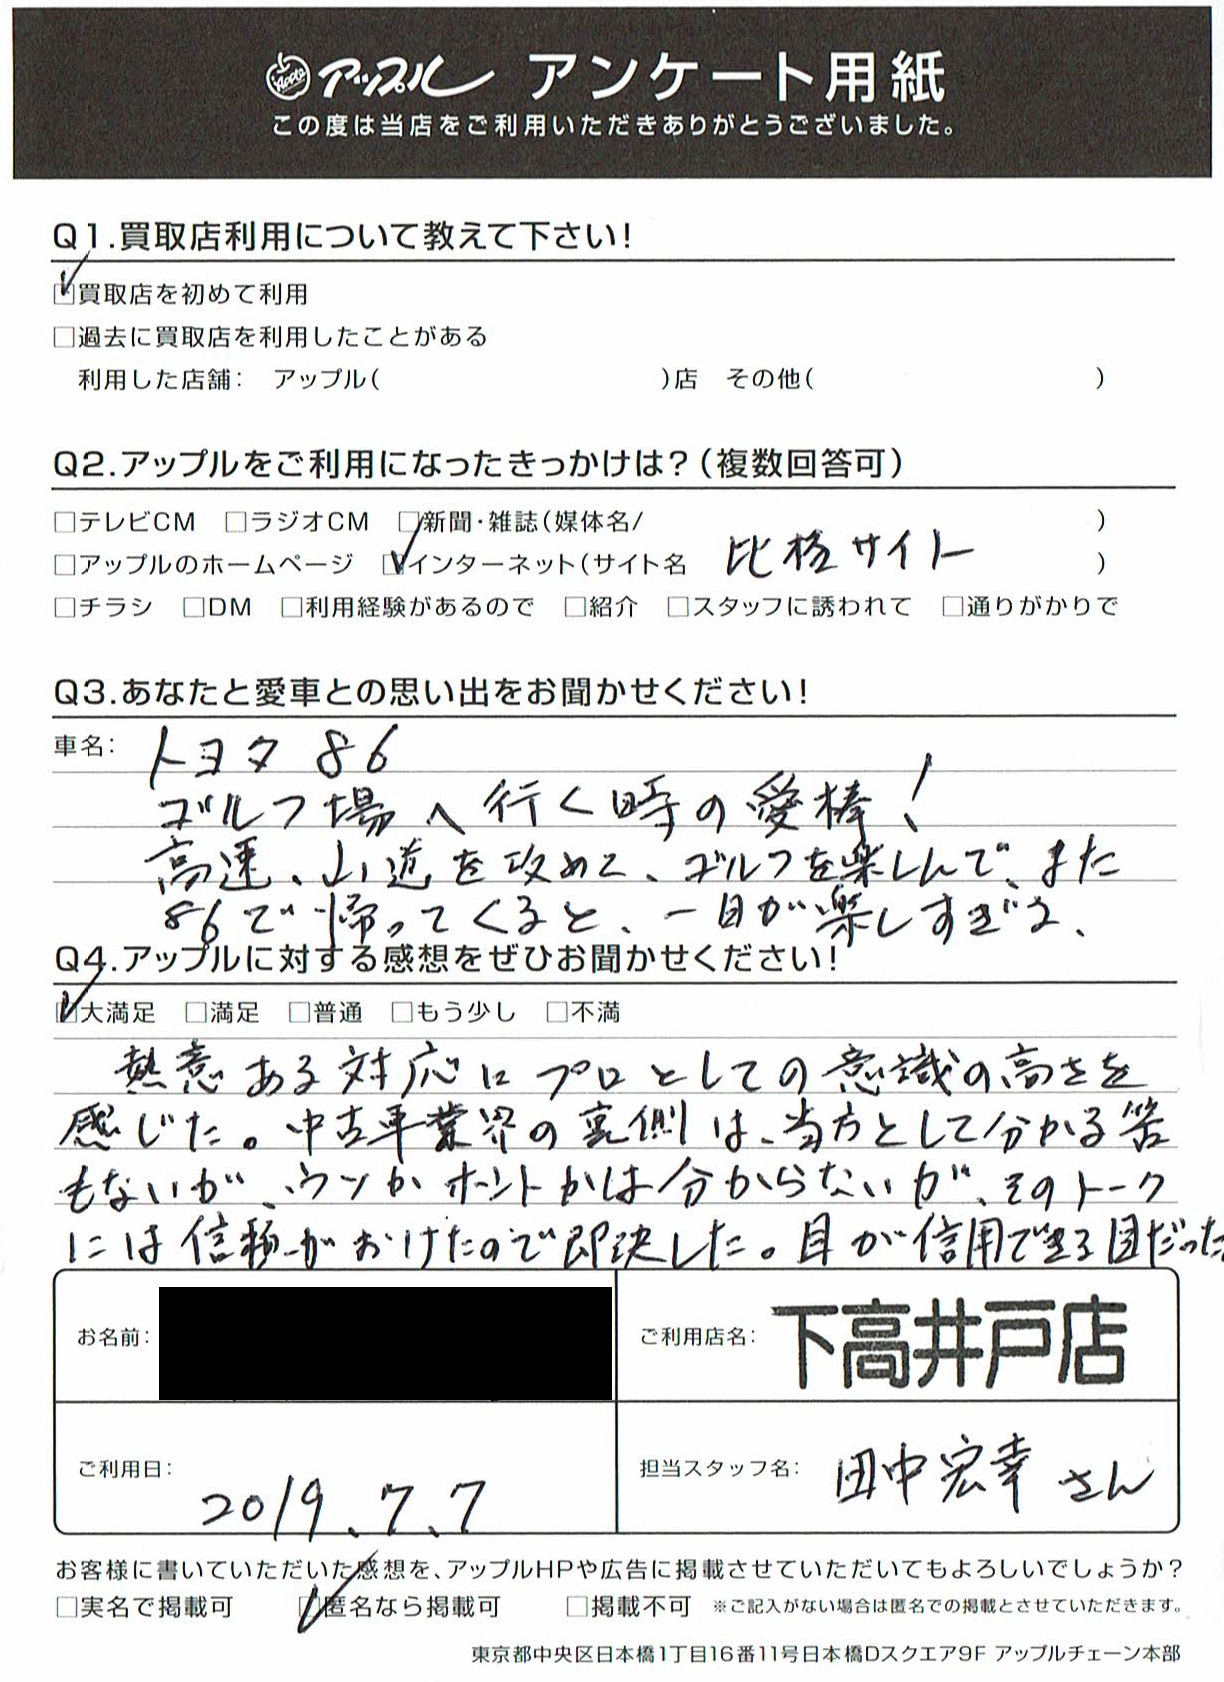 Apple アップル アンケート用紙
この度は当店をご利用いただきありがとうございました。
Q1.買取店利用について教えて下さい!
☑買取店を初めて利用
□過去に買取店を利用したことがある
利用した店舗: アップル( )店 その他( )
Q2.アップルをご利用になったきっかけは?(複数回答可)
□テレビCM □ラジオCM □新聞・雑誌(媒体名/ )
□アップルのホームページ ☑インターネット(サイト名 比較サイト )
□チラシ □DM □利用経験があるので □紹介 □スタッフに誘われて □通りがかりで
Q3.あなたと愛車との思い出をお聞かせください!
車名: トヨタ 86
ゴルフ場へ行く時の愛棒!
高速、山道を攻めて、ゴルフを楽しんで、また
86で帰ってくると、一日が楽しすぎる、
Q4.アップルに対する感想をぜひお聞かせください!
☑大満足 □満足 □普通 □もう少し □不満
熱意ある対応にプロとしての意識の高さを
感じた。中古車業界の裏側は、当方として分かる筈
もないが、ウソかホントかは分からないが、そのトーク
には信頼がおけたので即決した。目が信用できる目だった
お名前:
ご利用店名: 下高井戸店
ご利用日: 2019.7.7
担当スタッフ名: 田中宏幸さん
お客様に書いていただいた感想を、アップルHPや広告に掲載させていただいてもよろしいでしょうか?
□実名で掲載可 ☑匿名なら掲載可 □掲載不可 ※ご記入がない場合は匿名での掲載とさせていただきます。
東京都中央区日本橋1丁目16番11号日本橋Dスクエア9F アップルチェーン本部